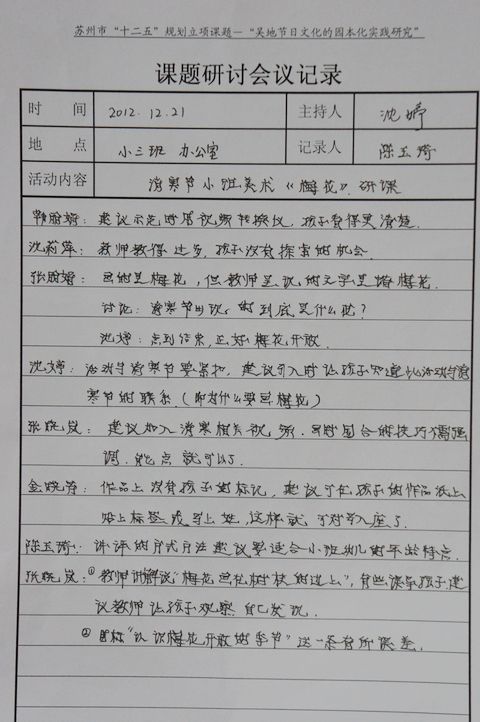 苏州市“十二五”规划立项课题—“吴地节日文化的园本化实践研究”
课题研讨会议记录
时 间 2012.12.21 主持人 沈婷
地 点 小三班 办公室 记录人 陈玉琦
活动内容 消寒节小班美术《梅花》研课
建议示范时用视频转换仪，孩子看得更清楚。
沈莉萍：教师教得过多，孩子没有探索的机会。
画的是梅花，但教师呈现的文字是腊梅花。
讨论：消寒节画的到底是什么花？
沈婷：点到结束，正好梅花开放。
沈婷：活动与消寒节要紧扣，建议引入时让孩子知道此活动与消
寒节的联系。（即为什么要画梅花）
张晓岚：建议加入消寒相关视频，画时围合的技巧需强
调，9个点就可以了。
金晓萍：作品上没有孩子的标记，建议可在孩子的作品纸上
贴上标签或写上姓，这样就可对号入座了。
陈玉琦：讲评的方式方法建议要适合小班幼儿的年龄特点。
张晓岚：①教师讲解说“梅花画在树枝的边上”，有些误导孩子，建
议教师让孩子观察，自己发现。
②目标“认识梅花开放的季节”这一条有所误差。